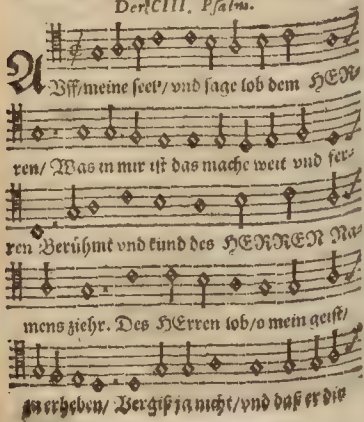 Der CIII. Psalm.
AVff/meine seel'/vnd sage lob dem HER-
ren/ Was in mir ist das mache weit vnd fer-
ren Berühmt vnd kund des HERREN Na-
mens ziehr. Des HErren lob/o mein geist/
zu erheben/ Vergiß ja nicht/vnd daß er dir